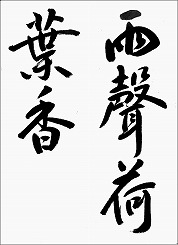 雨聲荷
葉香